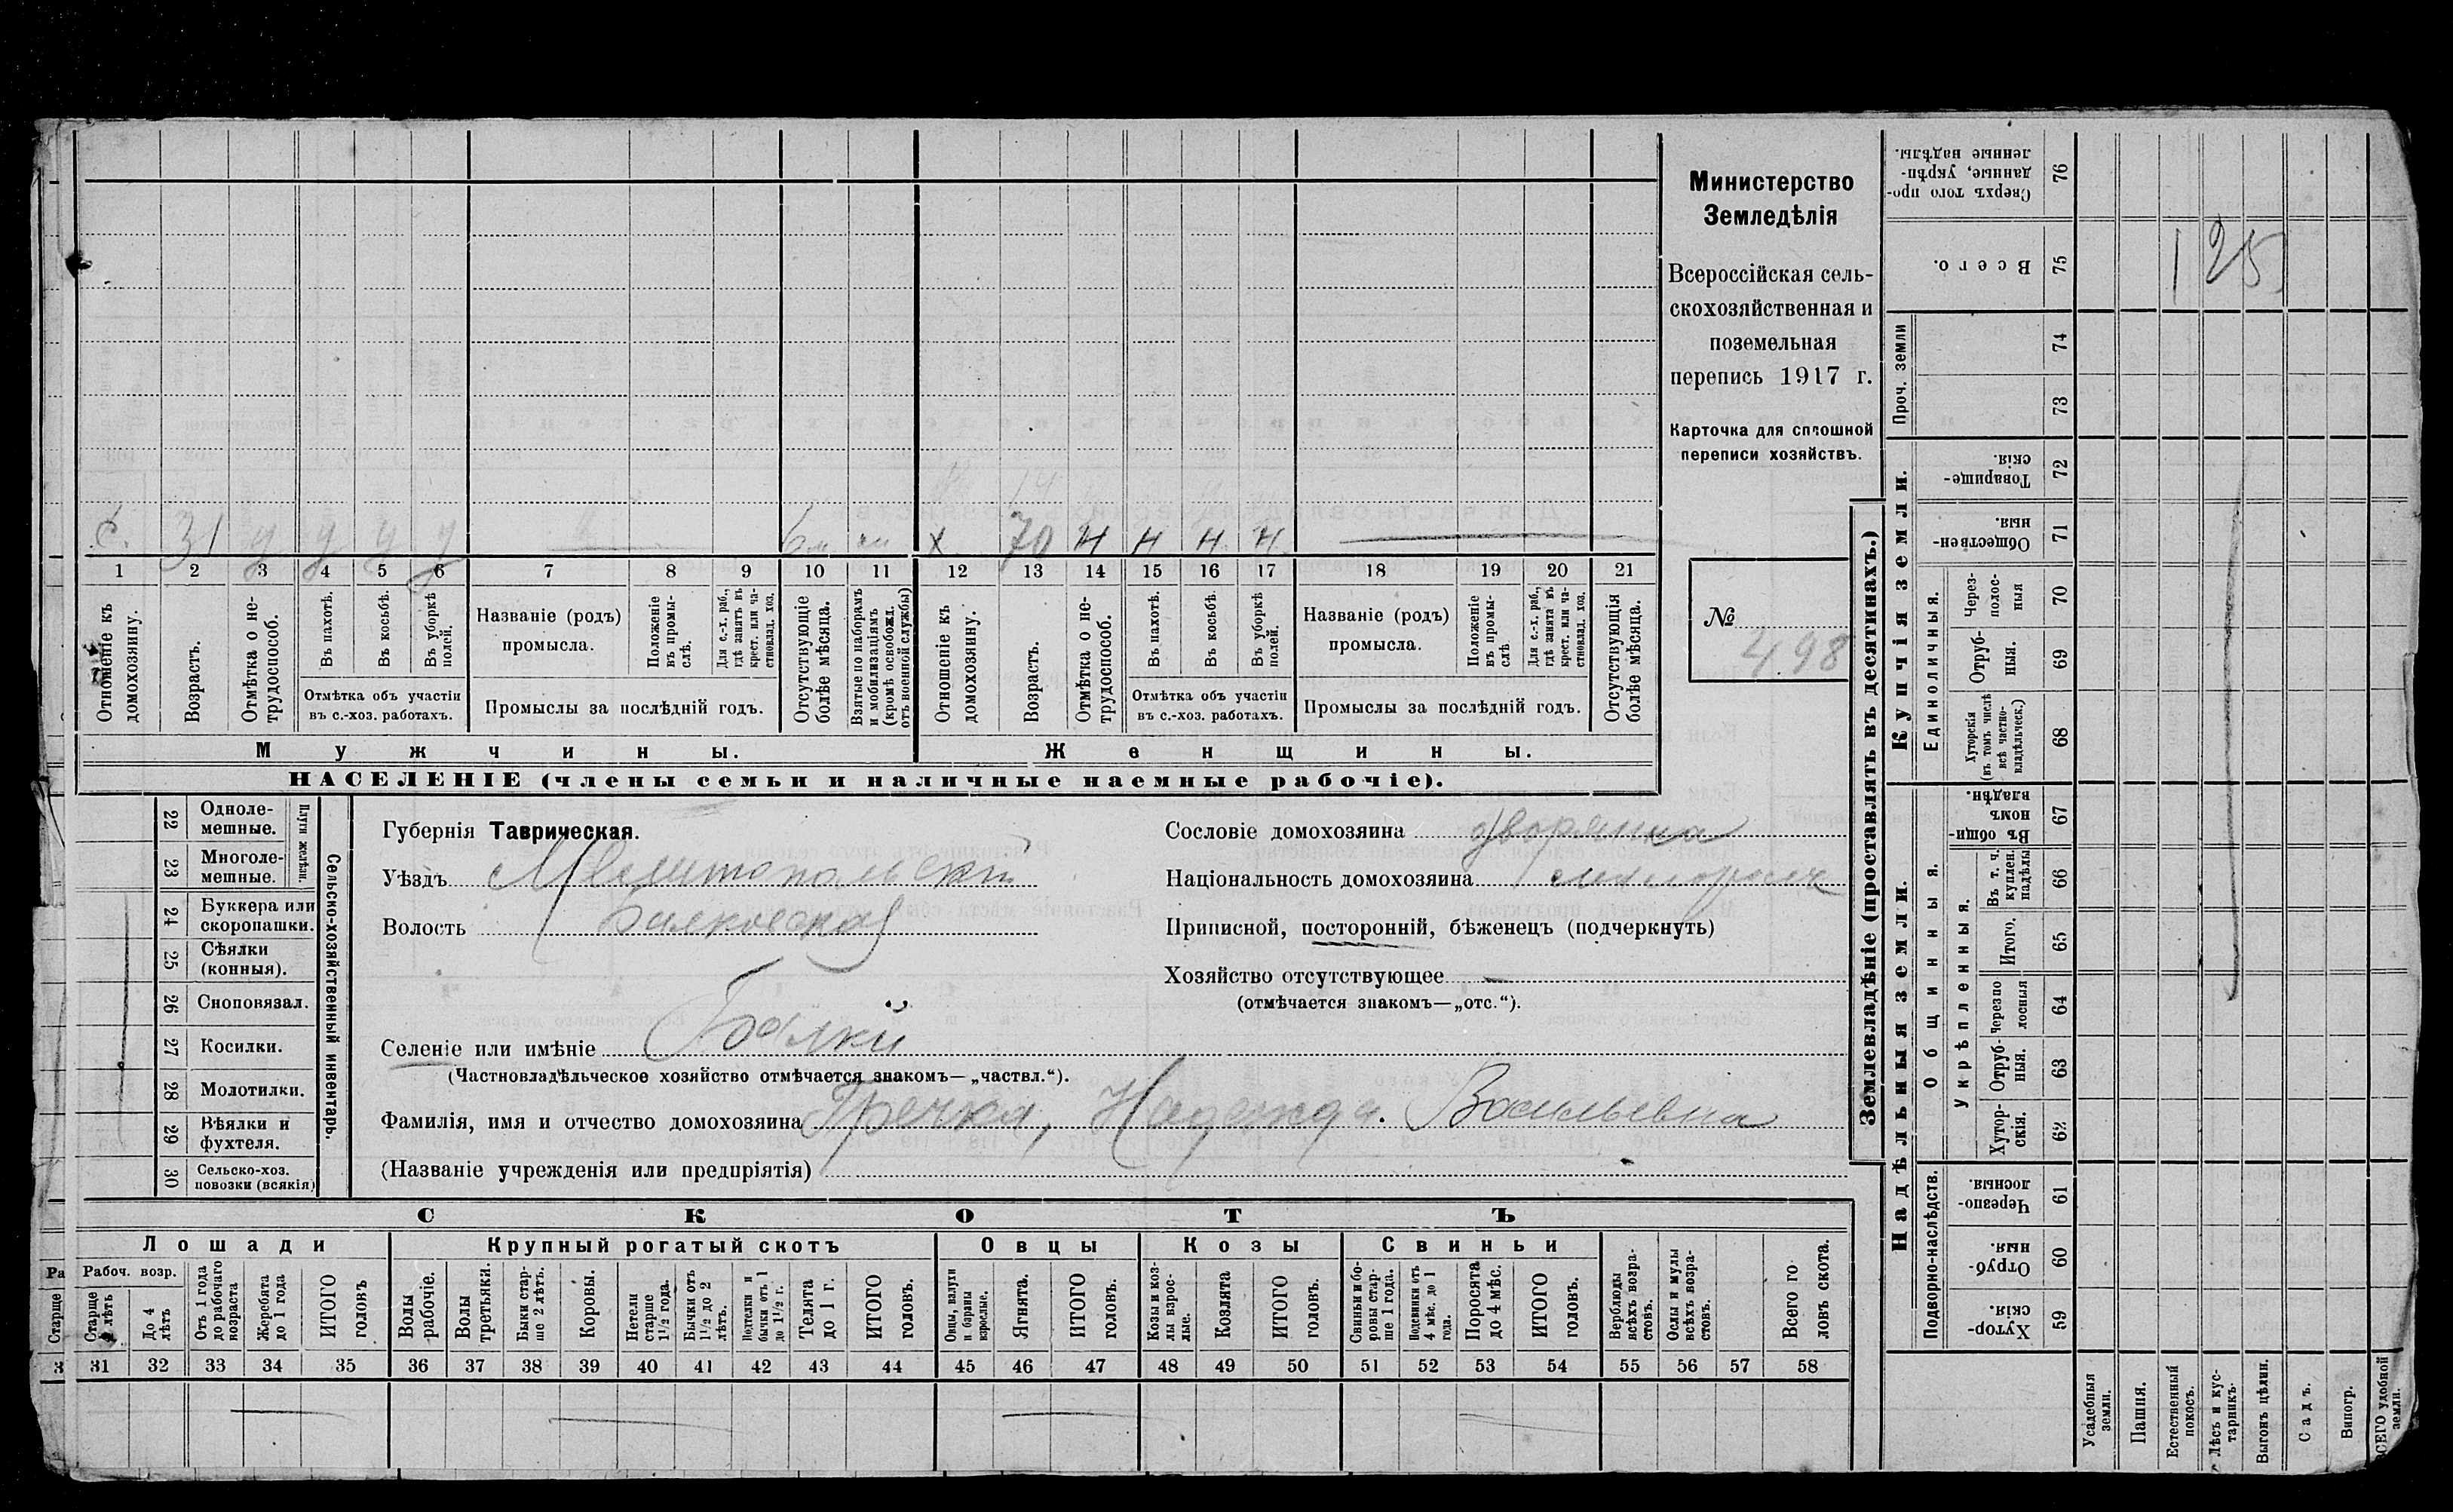 Министерство
Земледѣлія
Всероссійская сель-
скохозяйственная и
поземельная
перепись 1917 г.
Карточка для сплошной
переписи хозяйствъ.
№ 498
с. 31 у у у у — х 70 н н н н —
1 2 3 4 5 6 7 8 9 10 11 12 13 14 15 16 17 18 19 20 21
Отношеніе къ домохозяину.
Возрастъ.
Отмѣтка о не-трудоспособ.
Въ пахотѣ.
Въ косьбѣ.
Въ уборкѣ полей.
Отмѣтка объ участіи
въ с.-хоз. работахъ.
Названіе (родъ)
промысла.
Положеніе въ промы-слѣ.
Для с.-х. раб., гдѣ занятъ въ крест. или ча-стновлад. хоз.
Промыслы за послѣдній годъ.
Отсутствующіе болѣе мѣсяца.
Взятые по наборамъ и мобилизаціямъ (кромѣ освобожд. отъ военной службы)
Отношеніе къ домохозяину.
Возрастъ.
Отмѣтка о не-трудоспособ.
Въ пахотѣ.
Въ косьбѣ.
Въ уборкѣ полей.
Отмѣтка объ участіи
въ с.-хоз. работахъ.
Названіе (родъ)
промысла.
Положеніе въ промы-слѣ
Для с.-х. раб., гдѣ занята въ крест. или ча-стновлад. хоз.
Промыслы за послѣдній годъ.
Отсутствующія болѣе мѣсяца.
Мужчины.
Женщины.
НАСЕЛЕНІЕ (члены семьи и наличные наемные рабочіе).
22 Одноле-мешные.
23 Многоле-мешные.
Плуги желѣзн.
24 Буккера или скоропашки.
25 Сѣялки (конныя).
26 Сноповязал.
27 Косилки.
28 Молотилки.
29 Вѣялки и фухтеля.
30 Сельско-хоз. повозки (всякія)
Сельско-хозяйственный инвентарь.
Губернія Таврическая.
Уѣздъ Мелитопольскій
Волость Балковская
Сословіе домохозяина дворянка
Національность домохозяина малоросс
Приписной, посторонній, бѣженецъ (подчеркнуть)
Хозяйство отсутствующее —
(отмѣчается знакомъ—„отс.“).
Селеніе или имѣніе Балки
(Частновладѣльческое хозяйство отмѣчается знакомъ— „частвл.“).
Фамилія, имя и отчество домохозяина Гречка, Надежда Васильевна
(Названіе учрежденія или предпріятія)
СКОТЪ
Лошади
Крупный рогатый скотъ
Овцы
Козы
Свиньи
Рабоч. возр.
Старще 4 лѣтъ
До 4 лѣтъ
Отъ 1 года до рабочаго возраста
Жеребята до 1 года
ИТОГО головъ
Волы рабочіе.
Волы третьяки.
Быки стар-ше 2 лѣтъ.
Коровы.
Нетели старше 1½ года.
Бычки отъ 1½ до 2 лѣтъ.
Подтелки и бычки отъ 1 до 1½ г.
Телята до 1 г.
ИТОГО головъ.
Овцы, валухи и бараны взрослые.
Ягнята.
ИТОГО головъ.
Козы и коз-лы взрос-лые.
Козлята
ИТОГО головъ.
Свиньи и бо-ровы стар-ше 1 года.
Подсвинки отъ 4 мѣс. до 1 года.
Поросята до 4 мѣс.
ИТОГО головъ.
Верблюды всѣхъ возра-стовъ.
Ослы и мулы всѣхъ возра-стовъ.
Всего го-ловъ скота.
31 32 33 34 35 36 37 38 39 40 41 42 43 44 45 46 47 48 49 50 51 52 53 54 55 56 57 58
Землевладѣніе (проставлять въ десятинахъ.)
Надѣльныя земли.
Купчія земли.
Проч. земли
Подворно-наслѣдств.
Общинныя.
Укрѣпленныя.
Единоличныя.
Сверхъ того про-данные, укрѣп-ленные надѣлы. 76
Всего. 75
125
74
73
Товарище-скія. 72
Обществен-ныя. 71
Через-полос-ныя 70
Отруб-ныя. 69
Хуторскія (въ томъ числѣ всѣ частно-владѣльческ.) 68
Въ общин-номъ владѣн. 67
Въ т. ч. куплен. надѣлы 66
Итого. 65
Черезпо лосныя 64
Отруб-ныя. 63
Хутор-скія. 62
Черезпо-лосныя. 61
Отруб-ныя. 60
Хутор-скія. 59
Усадебныя земли.
Пашня.
Естественный покосъ.
Лѣсъ и кус-тарникъ.
Выгонъ цѣлин.
Садъ.
Виногр.
ВСЕГО удобной земли.